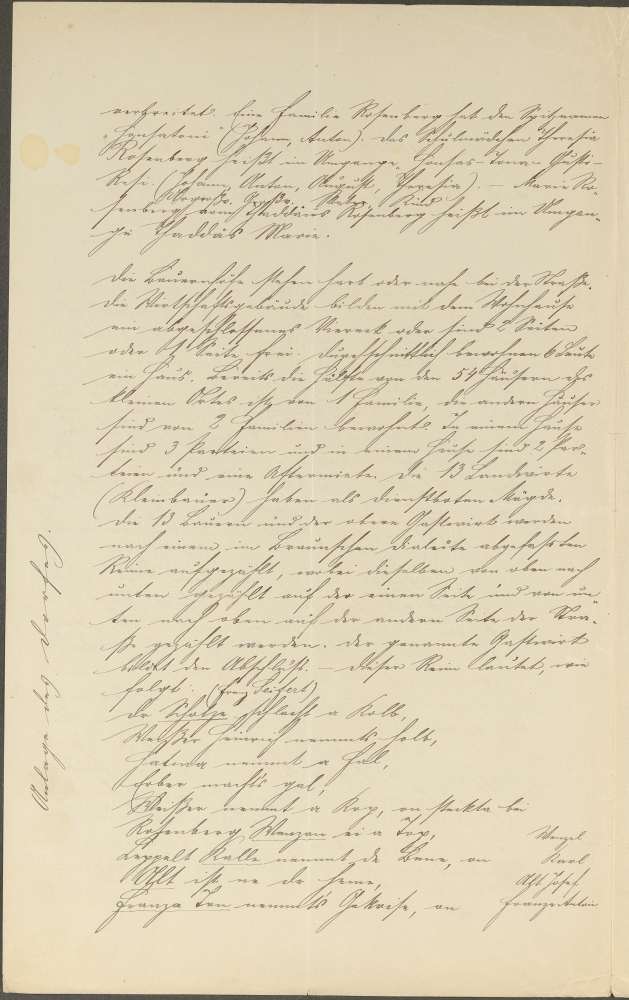 verbreitet. Eine Familie Rosenberg hat den Spitznamen
"Honsatoni" (Johann, Anton). Das Schulmädchen Theresia
Rosenberg heißt im Umgange Honsas-Tona-Gusti-
Resi. (Johann, Anton, August, Theresia). - Marie Ro-
Urgroßv. Großv. Vater Kind
senberg vom Thaddäus Rosenberg heißt im Umgan-
ge Thaddäs Marie.
Die Bauernhöfe stehen hart oder nahe bei der Straße.
Die Wirtschaftsgebäude bilden mit dem Wohnhause
ein abgeschlossenes Viereck oder sind 2 Seiten
oder 1 Seite frei. Durchschnittlich bewohnen 6 Leute
ein Haus. Bereits die Hälfte von den 54 Häusern des
kleinen Ortes ist von 1 Familie, die andern Häuser
sind von 2 Familien bewohnt. In einem Hause
sind 3 Parteien und in einem Hause sind 2 Par-
teien und eine Aftermiete. Die 13 Landwirte
(Kleinbauer) haben als Dienstboten Mägde.
Die 13 Bauern und der obere Gastwirt werden
nach einem, im Braunschen Dialekte abgefaßten
Reime aufgezählt, wobei dieselben von oben nach
unten gezählt auf der einen Seite und von un-
ten nach oben auf der andern Seite der Stra-
ße gezählt werden. Der genannte Gastwirt
bildet den Abschluß. - Dieser Reim lautet, wie
folgt: (Franz Seifert)
Dr Scholze schlacht a Kolb,
Weißer Heinrich nemmts holb,
Hatwa nemmt a Fal,
Erber machts gal,
Weißer nemmt a Kop, on steckta bei
Rosenberg Wenzan ei a Top, Wenzel
Leppelt Kalle nemmt de Bene, on Karl
Alt ist ne dr heme, Alt Josef
Franza Ton nemmt's Gekreise, on Franze Anton
Anlage des Dorfes.